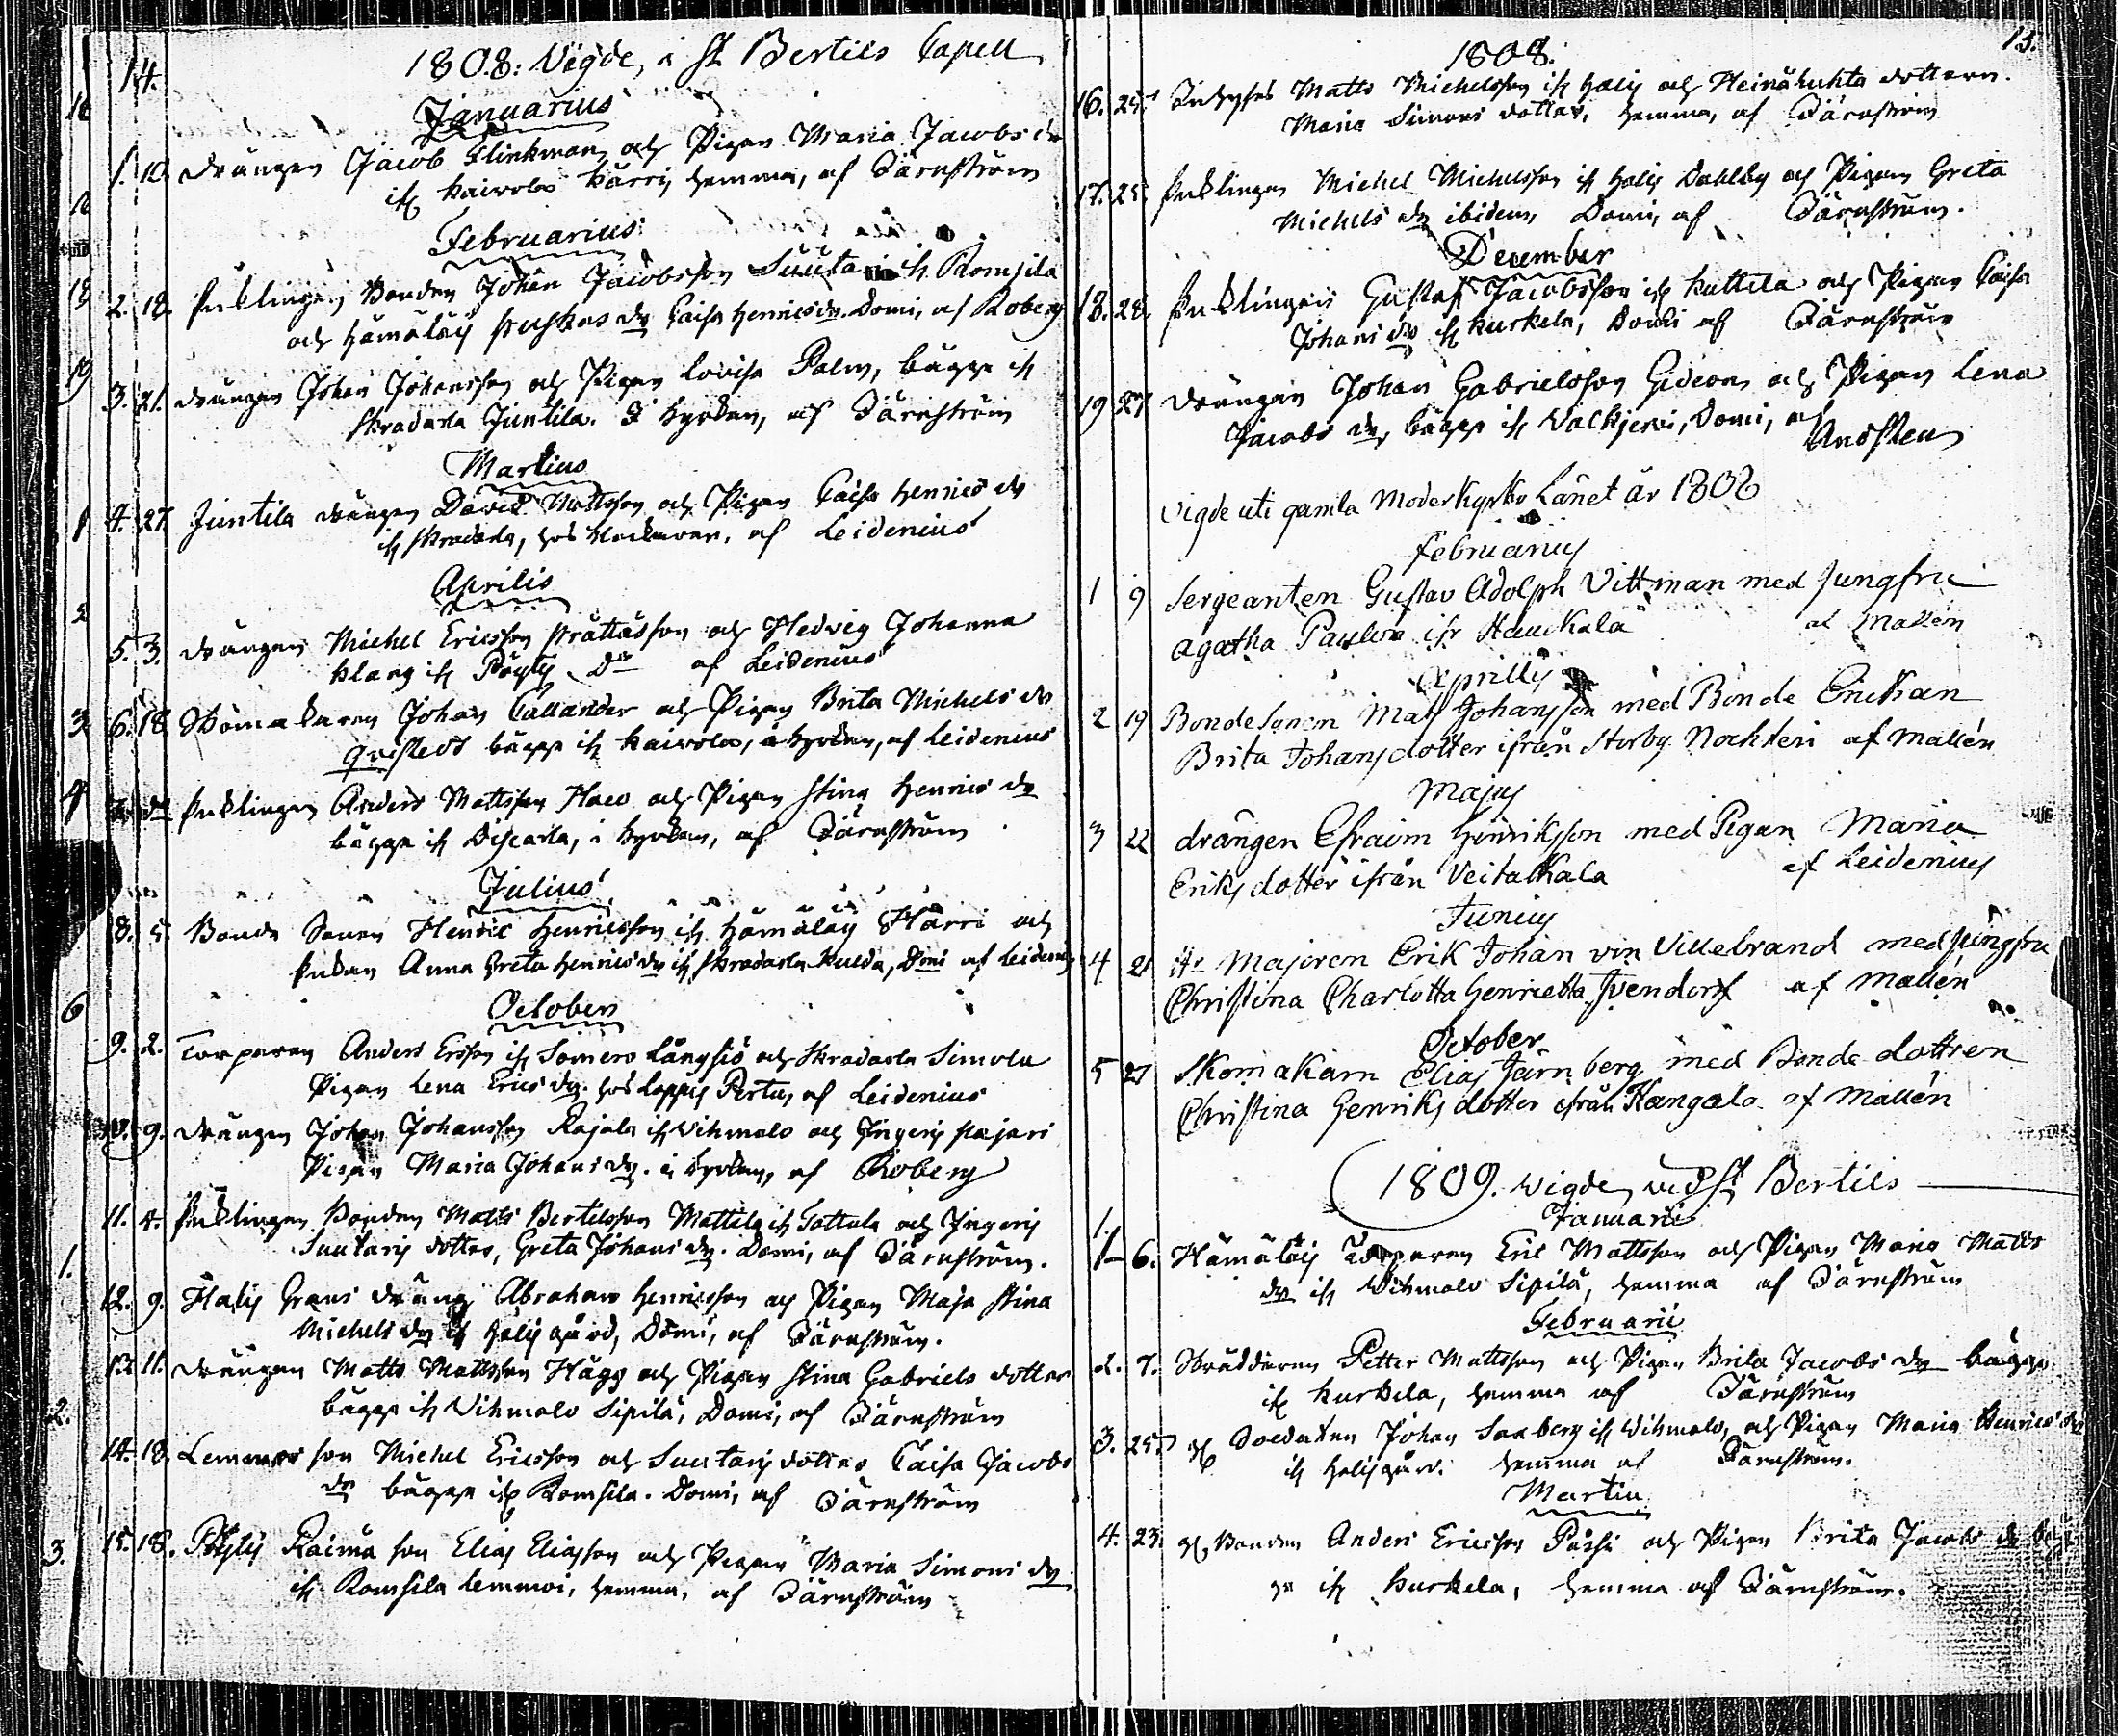 14.
1808: Vigde i St Bertils Capell
Januarius
1. 10. Drängen Jacob Flinkman och Pigan Maria Jacobs dr
ifr Kaivola Härri, hemma, af Järnström
Februarius
2. 18. Änklingen Bonden Johan Jacobsson Suutari ifr Romsila
och Hämäläis dr Caisa Henricsdr. Domi, af Roberg
3. 21. Drängen Johan Johansson och Pigan Lovisa Palm, bägge ifr
Skradarla Juntila. I kyrkan, af Järnström
Martius
4. 27. Juntila drängen David Mattsson och Pigan Caisa Henrics dr
ifr Skradarla, hos af Leidenius
Aprilis
5. 3. Drängen Michel Ericsson och Hedvig Johanna
Klang ifr Pöytis Do af Leidenius
6. 18. Skomakaren Johan Callander och Pigan Brita Michels dr
Qvistedt bägge ifr Kaivola, i kyrkan, af Leidenius
do Änklingen Anders Mattsson och Pigan Stina Henrics dr
bägge ifr Discarla, i kyrkan, af Järnström
Julius
8. 5. Bonde Sonen Henric Henricsson ifr Hämäläis Härri och
Änkan Anna Greta Henrics dr ifr Skradarla, Domi af Leidenius
October
9. 2. Torparen Anders Ersson ifr Somero Långsjö och Skradarla Simola
Pigan Lena Erics dr. hos Loppis Pertu, af Leidenius
10. 9. Drängen Johan Johansson Rajala ifr Vihmalo och Ingeris Pajari
Pigan Maria Johans dr. i kyrkan, af Roberg
11. 4. Änklingen Bonden Matts Bertilsson Mattila ifr Tottula och Ingeris
Suutaris dotter, Greta Johans dr. Domi, af Järnström.
12. 9. Halis Grans dräng Abraham Henricsson och Pigan Maja Stina
Michels dr ifr Halis gård, Domi, af Järnström.
13. 11. Drängen Matts Mattsson Hägg och Pigan Stina Gabriels dotter
bägge ifr Vihmalo Sipilä, Domi, af Järnström
14. 18. Lemmois son Michel Ericsson och Suutaris dotter Caisa Jacobs
dr bägge ifr Romsila. Domi, af Järnström
15. 18. Pöytis Raimä son Elias Eliasson och Pigan Maria Simons dr
ifr Romsila Lemmoi, hemma, af Järnström
1808.
15.
16. 25. Matts Michelsson ifr Halis och Heinähuhta dottern
Maria Simons dotter, hemma, af Järnström
17. 25. Änklingen Michel Michelsson ifr Halis Dahlby och Pigan Greta
Michels dr ibidem, Domi, af Järnström.
December
18. 26. Änklingen Gustaf Jacobsson ifr Kuttila och Pigan Caisa
Johans dr ifr Kurkela, Domi af Järnström
19 27 Drängen Johan Gabrielsson Gideon och Pigan Lena
Jacobs dr, bägge ifr Valkjervi, Domi, af
Andsten
Vigde uti gamla Moderkyrko Länet år 1808
Februarius
1 9 Sergeanten Gustav Adolph Vittman med Jungfru
Agatha ifr Haukkala af Mallén
Aprillis
2 19 Bonde Sonen Mats Johansson med Bonde Enckan
Brita Johansdotter ifrån Storby Nochteri af Mallén
Majus
3 22 drängen Efraim Henriksson med Pigan Maria
Eriksdotter ifrån Veitakkala af Leidenius
Junius
4 21 Hr Majoren Erik Johan von Villebrand med Jungfru
Christina Charlotta Henrietta af Mallén
October
5 27 Skomakarn Elias Järnberg med Bonde dottren
Christina Henriksdotter ifrån Kangala af Mallén
1809. Wigde wid St Bertils
Januarii
1. 6. Hämäläis Torparen Eric Mattsson och Pigan Maria Matts
dr ifr Vihmalo Sipilä, hemma af Järnström
Februarii
2. 7. Skräddaren Petter Mattsson och Pigan Brita Jacobs dr bägge
ifr Kurkela, hemma af Järnström
3. 25. Soldaten Johan Saxberg ifr Vihmalo, och Pigan Maria Henrics dr
ifr Halis gård. hemma af Järnström.
Martii
4. 23. Bonden Anders Ericsson Passi och Pigan Brita Jacobs dr bäg-
ge ifr Kurkela, hemma af Järnström.